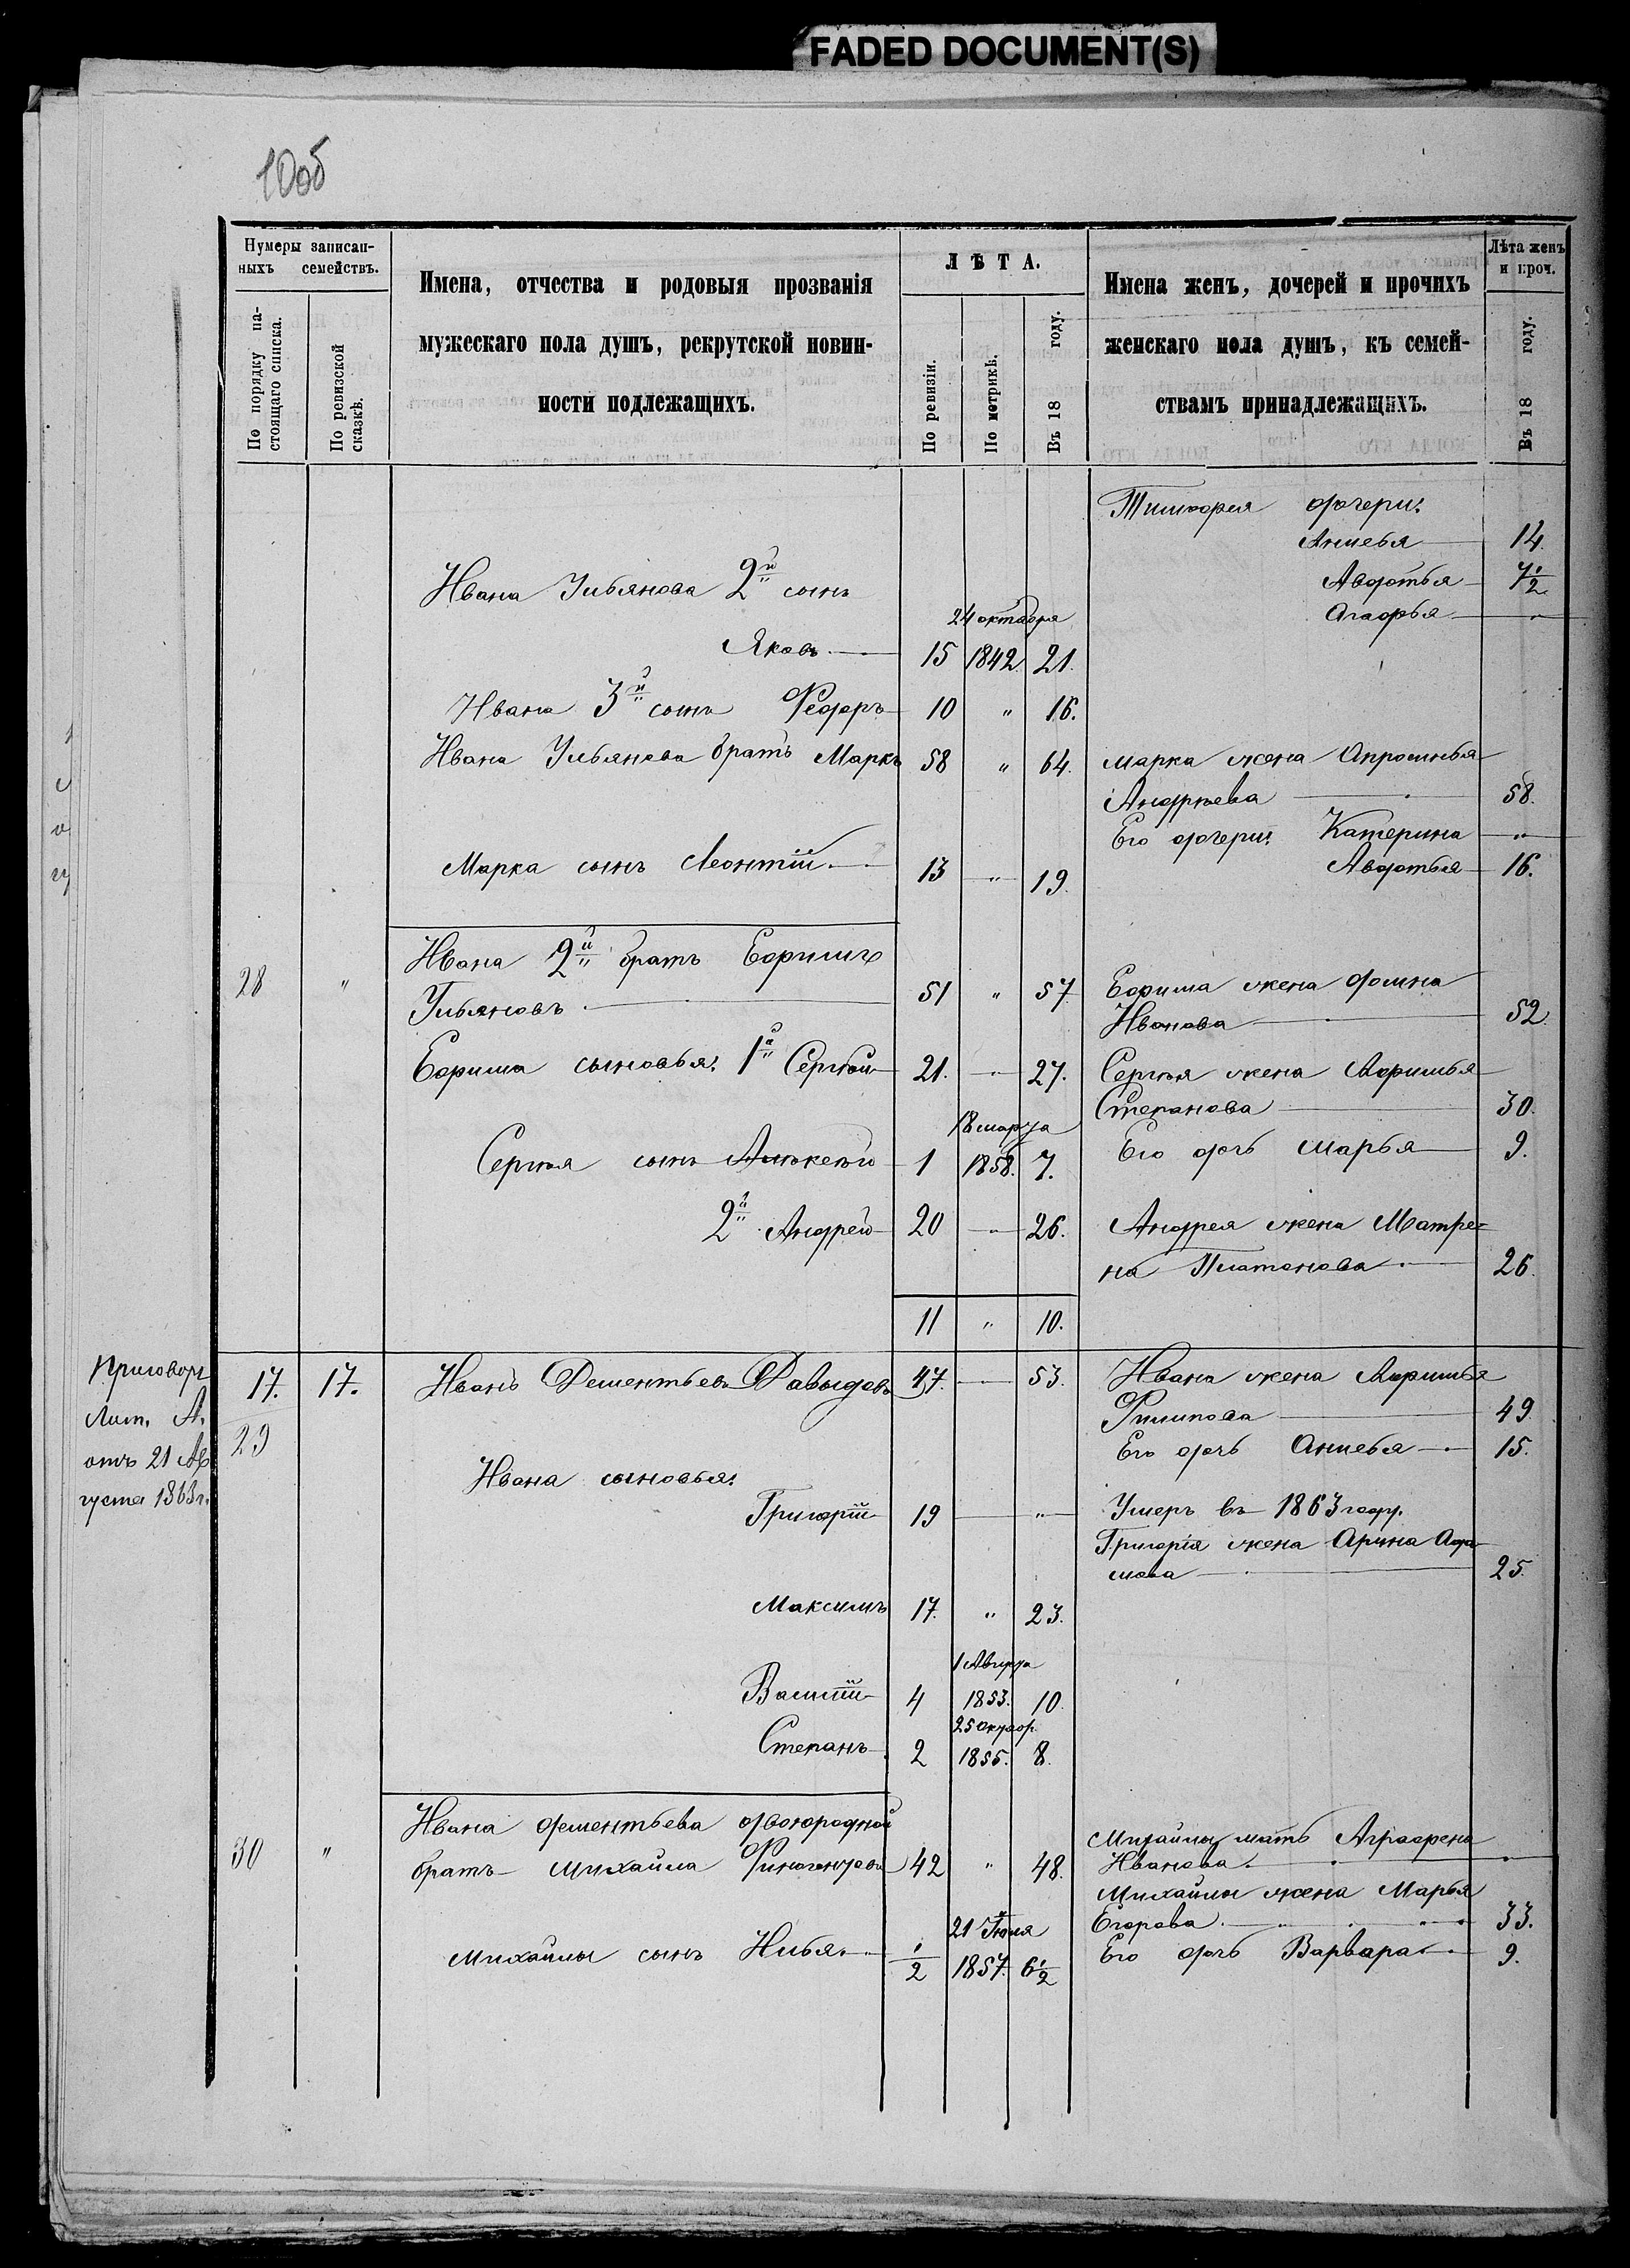 FADED DOCUMENT(S)
10об
Нумеры записан-
ныхъ семействъ.
По порядку на-
стоящаго списка.
По ревизской
сказкѣ.
Имена, отчества и родовыя прозванія
мужескаго пола душъ, рекрутской повин-
ности подлежащихъ.
ЛѢТА.
По ревизіи.
По метрикѣ.
Въ 18 году.
Имена женъ, дочерей и прочихъ
женскаго пола душъ, къ семей-
ствамъ принадлежащихъ.
Лѣта женъ
и проч.
Въ 18 году.
дочери:
14.
Ивана Ульянова 2й сынъ
Авдотья 7½
24 октября
Агафья „
Яковъ 15 1842 21.
Ивана 3й сынъ Федоръ 10 „ 16.
Ивана Ульянова братъ Маркъ 58 „ 64. Марка жена Апросинья
Андрѣева 58.
Его дочери: Катерина „
Марка сынъ Леонтій 13 „ 19. Авдотья 16.
28 „ Ивана 2й братъ Ефимъ
Ульяновъ 51 „ 57 Ефима жена Домна
Иванова 52.
Ефима сыновья: 1й Сергѣй 21. „ 27. Сергѣя жена Афимья
Степанова 30.
18 марта
Сергѣя сынъ Алексѣй 1 1858. 7. Его дочь Марья 9.
2й Андрей 20 „ 26. Андрея жена Матре=
на Платонова 26.
11 „ 10.
Приговоръ
Лит. А.
отъ 21 Ав
густа 1863 г.
17. 17. Иванъ Дементьевъ Давыдовъ 47. 53. Ивана жена Афимья
Филипова 49
29 Его дочь 15.
Ивана сыновья:
Григорій 19 „ Умеръ въ 1863 году.
Григорія жена Арина Ада
мова 25.
Максимъ 17. „ 23.
Василій 4 1853. 10.
25 октяб
Степанъ 2 1855. 8.
Ивана Дементьева двоюродной
30 „ братъ Михайла Финогентовъ 42 „ 48. Михайлы мать Аграфена
Иванова „
Михайлы жена Марья
Егорова 33.
21 Іюля
Михайлы сынъ Илья ½ 1857. 6½ Его дочь Варвара 9.